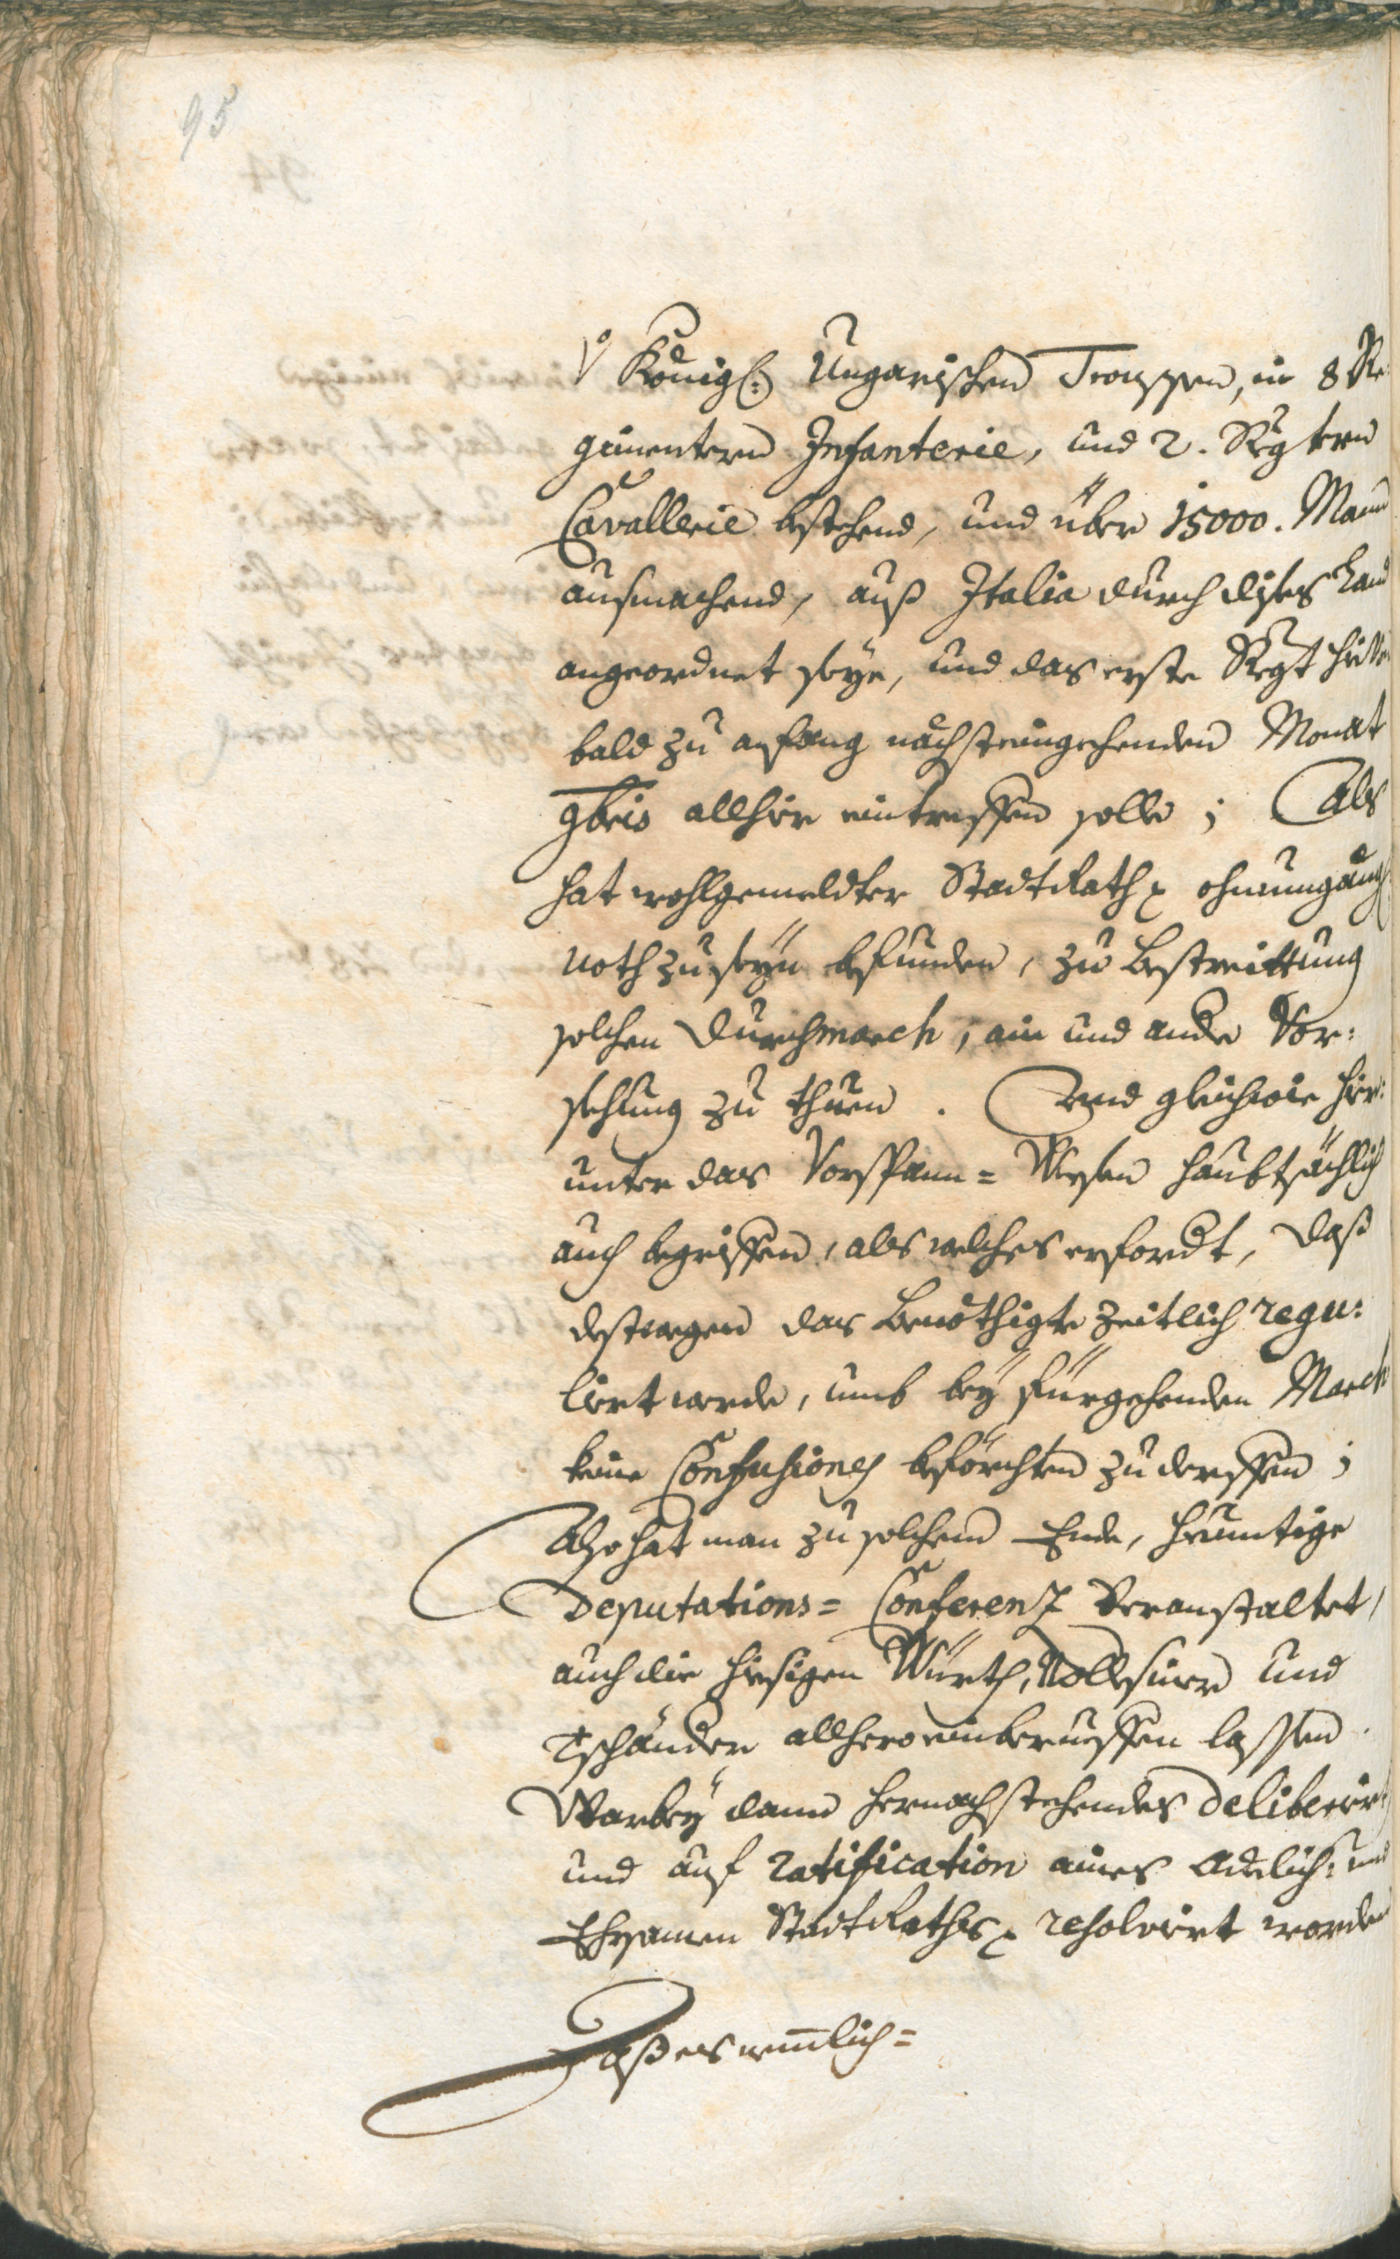 95
Königl: Ungarischen Trouppen, in 8 Re:
gimentern Infanterie, und 2. Regtern
Cavallerie bestehend, und über 15000. Mann
ausmachend, auß Italia durch dises Land
angeordnet seye, und das erste Regt
bald zu anfang nächsteingehenden Monat
9bris allhier eintreffen solle; Als
hat wohlgemeldter StadtRath ohnumgängl:
noth zu seyn befunden, zu Bestreittung
solchen Durchmarch, ain und andre Vor:
sehung zu thuen. Und gleichwie hier:
unter das Vorspann= Wesen haubtsächlich
auch begriffen, als welches erfordt, daß
destwegen das Benöthigte zeitlich regu:
liert werde, umb bey fürgehenden March
keine Confusiones beförchten zu derffen;
Also hat man zu solchem Ende, heuntige
Deputations= Conferenz Veranstaltet,
auch die hiesigen Würth, und
allhero einberueffen lassen.
Warbey dann hernachstehendes deliberirt
und auf ratification aines Adelich: und
Ehrsamen StadtRaths resolviert worden
Daß es nemlich=